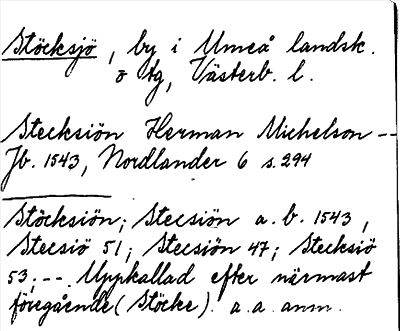 Stöcksjö, by i Umeå landsk.
o tg, Västerb. l.
Stecksiön Herman Michelson --
Jb. 1543, Nordlander 6 s. 294
Stöcksiön; Stecsiön a. b. 1543,
Stecsiö 51; Stecsiön 47; Stecksiö
53; -- Uppkallad efter närmast
föregående (Stöcke). a. a. anm.